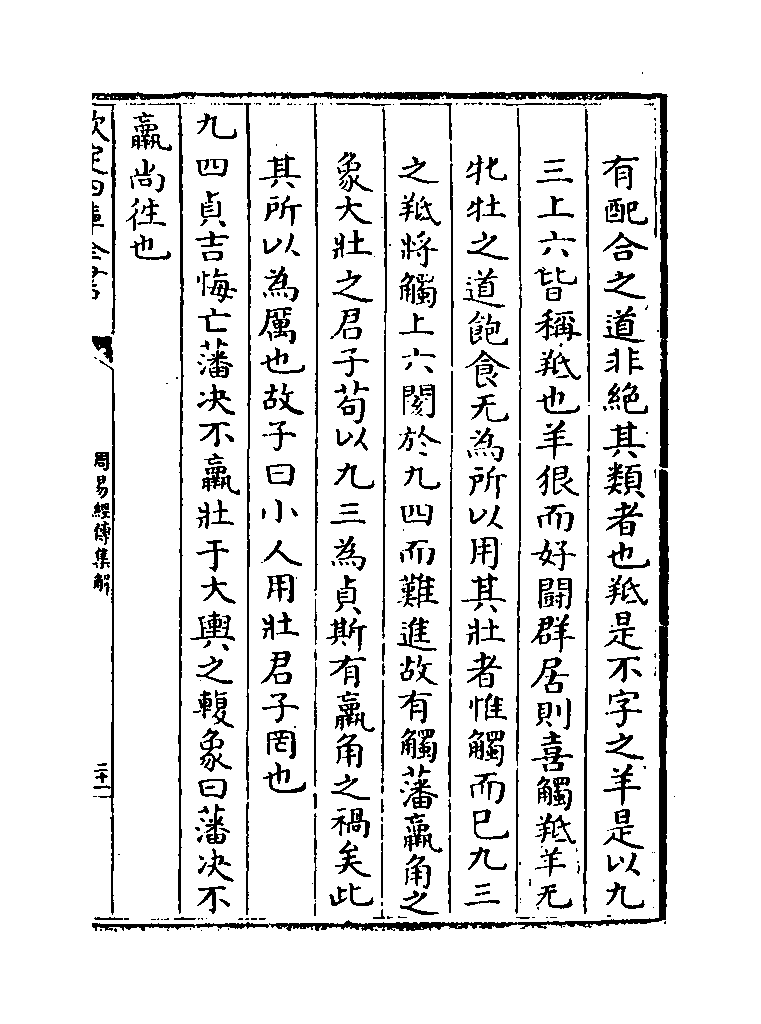 有配合之道非絕其類者也羝是不字之羊是以九
三上六皆稱羝也羊狠而好鬪群居則喜觸羝羊无
牝牡之道飽食无為所以用其壯者惟觸而已九三
之羝將觸上六閡於九四而難進故有觸藩羸角之
象大壯之君子苟以九三為貞斯有羸角之禍矣此
其所以為厲也故子曰小人用壯君子罔也
九四貞吉悔亡藩决不羸壯于大輿之輹象曰藩决不
羸尚往也
欽定四庫全書
周易經傳集解
二十一